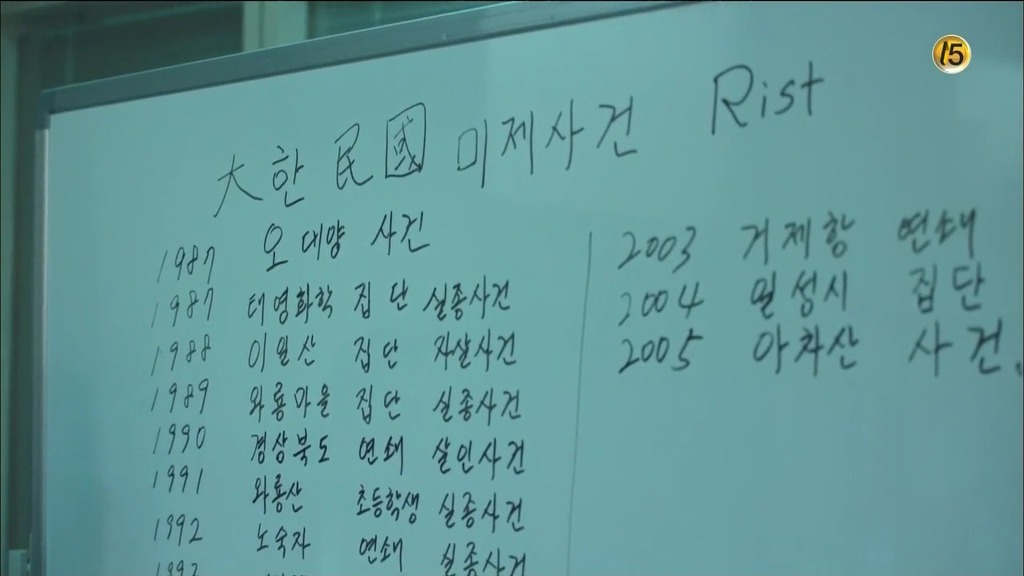 15
大한民國 미제사건 Rist
1987 오대양 사건
1987 태영화학 집단 실종사건
1988 이원산 집단 자살사건
1989 와룡마을 집단 실종사건
1990 경상북도 연쇄 살인사건
1991 와룡산 초등학생 실종사건
1992 노숙자 연쇄 실종사건
2003 거제항 연쇄
2004 일성시 집단
2005 아차산 사건